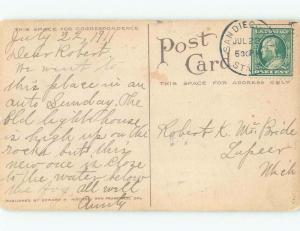 THIS SPACE FOR CORRESPONDENCE
July 22, 1911
Dear Robert.
We went to
this place in an
auto Sunday. The
old lighthouse
is high up on the
rocks but this
new one is close
to the water, below
the fog. All well
Aunty
Post Card
THIS SPACE FOR ADDRESS ONLY
SAN DIEGO
JUL 2
530
ONE CENT
Robert K. McBride
Lapeer
Mich
PUBLISHED BY EDWARD H. SAN FRANCISCO, CAL.